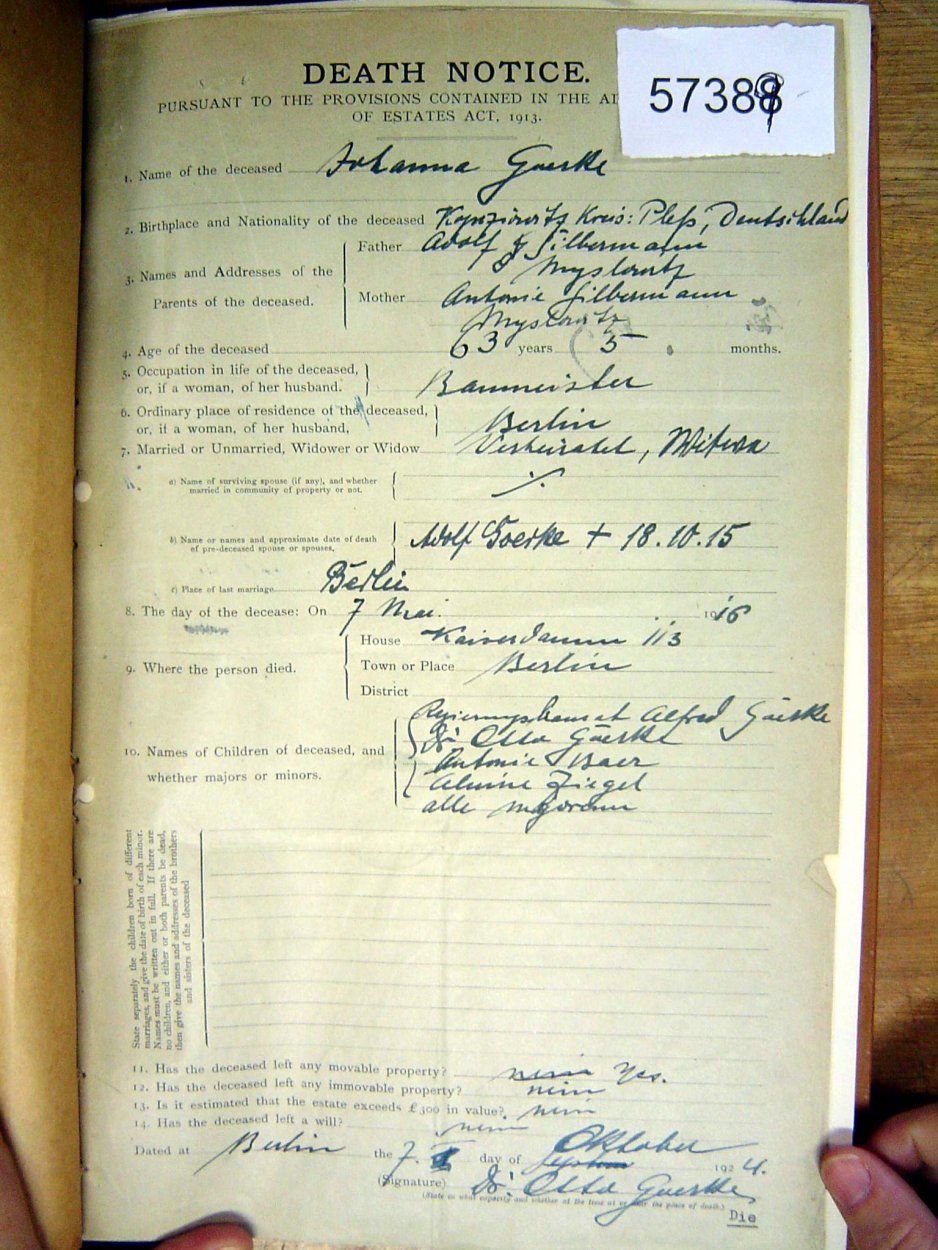 57389
DEATH NOTICE.
PURSUANT TO THE PROVISIONS CONTAINED IN THE
OF ESTATES ACT, 1913.
1. Name of the deceased Johanna Goerke
2. Birthplace and Nationality of the deceased Kreis: Pleß, Deutschland
3. Names and Addresses of the Parents of the deceased.
Father Adolf Silbermann
Myslowitz
Mother Antonie Silbermann
Myslowitz
4. Age of the deceased 63 years 5 months.
5. Occupation in life of the deceased, or, if a woman, of her husband. Baumeister
6. Ordinary place of residence of the deceased, or, if a woman, of her husband, Berlin
7. Married or Unmarried, Widower or Widow Verheiratet, Witwe
a) Name of surviving spouse (if any), and whether
married in community of property or not. ·/.
b) Name or names and approximate date of death
of pre-deceased spouse or spouses. Adolf Goerke + 18.10.15
c) Place of last marriage Berlin
8. The day of the decease: On 7 Mai. 1916
9. Where the person died.
House Kaiserdamm 113
Town or Place Berlin
District
10. Names of Children of deceased, and
whether majors or minors.
Alfred Görke
Dr Otto Görke
Antonie Baer
Ziegel
alle majorenn
State separately the children born of different
marriages, and give the date of birth of each minor.
Names must be written out in full. If there are
no children, and either or both parents be dead,
then give the names and addresses of the brothers
and sisters of the deceased
11. Has the deceased left any movable property? nein Yes.
12. Has the deceased left any immovable property? nein
13. Is it estimated that the estate exceeds £300 in value? nein
14. Has the deceased left a will? nein
Dated at Berlin the 7. day of Oktober 1924.
(Signature) Dr. Otto Goerke
(State in what capacity and whether at the time at or near the place of death.)
Die